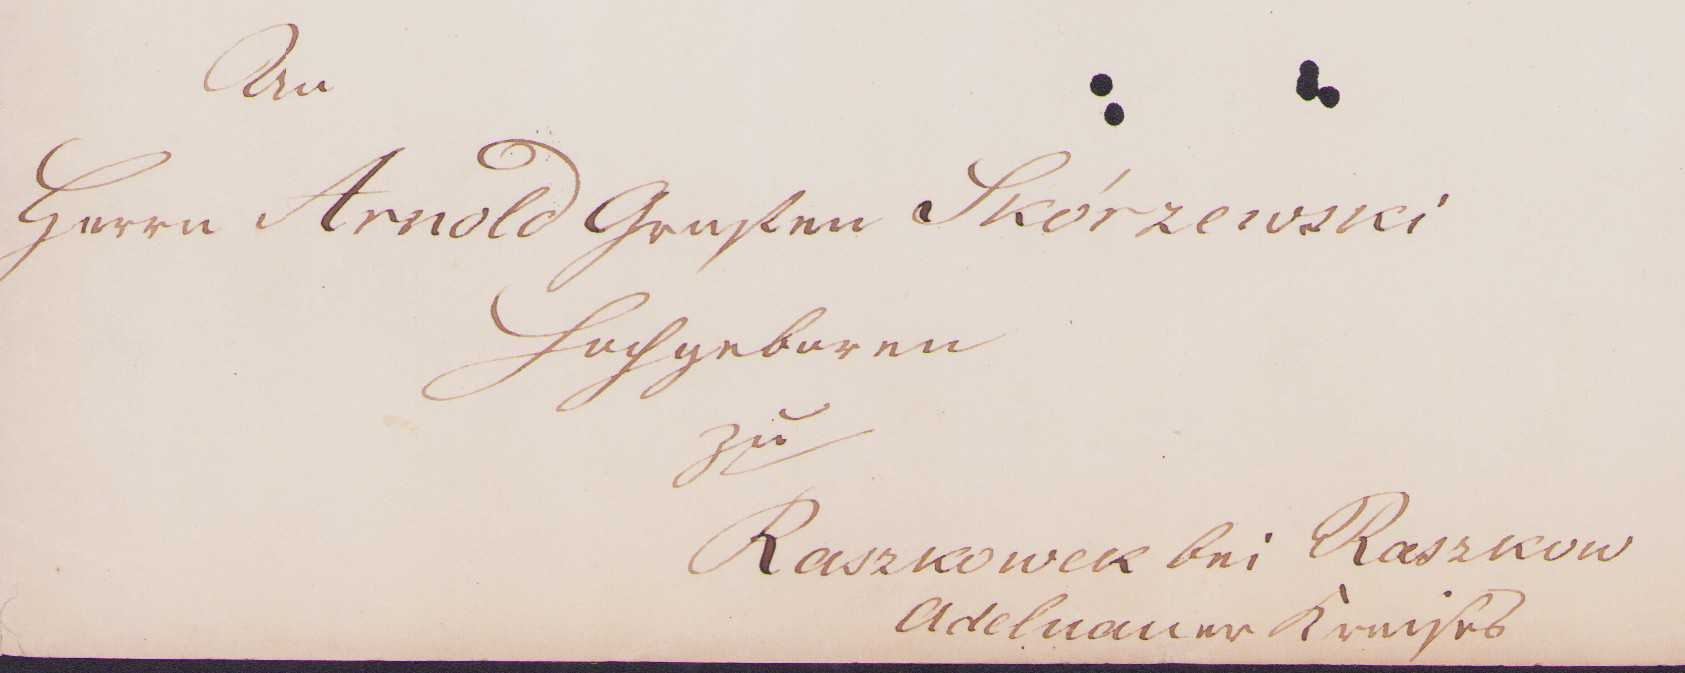 An
Herrn Arnold Grafen Skórzewski
Hochgeboren
zu
Raszkowek bei Raszkow
Adelnauer Kreises